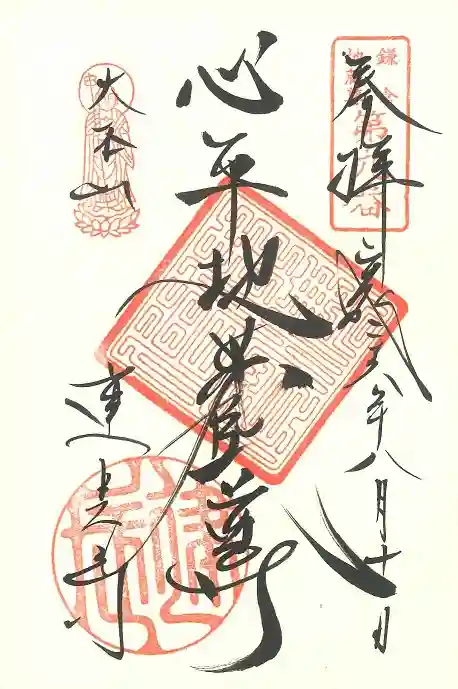 奉拝 平成二六年八月十日
心平地蔵尊
大本山
建長寺
鎌倉